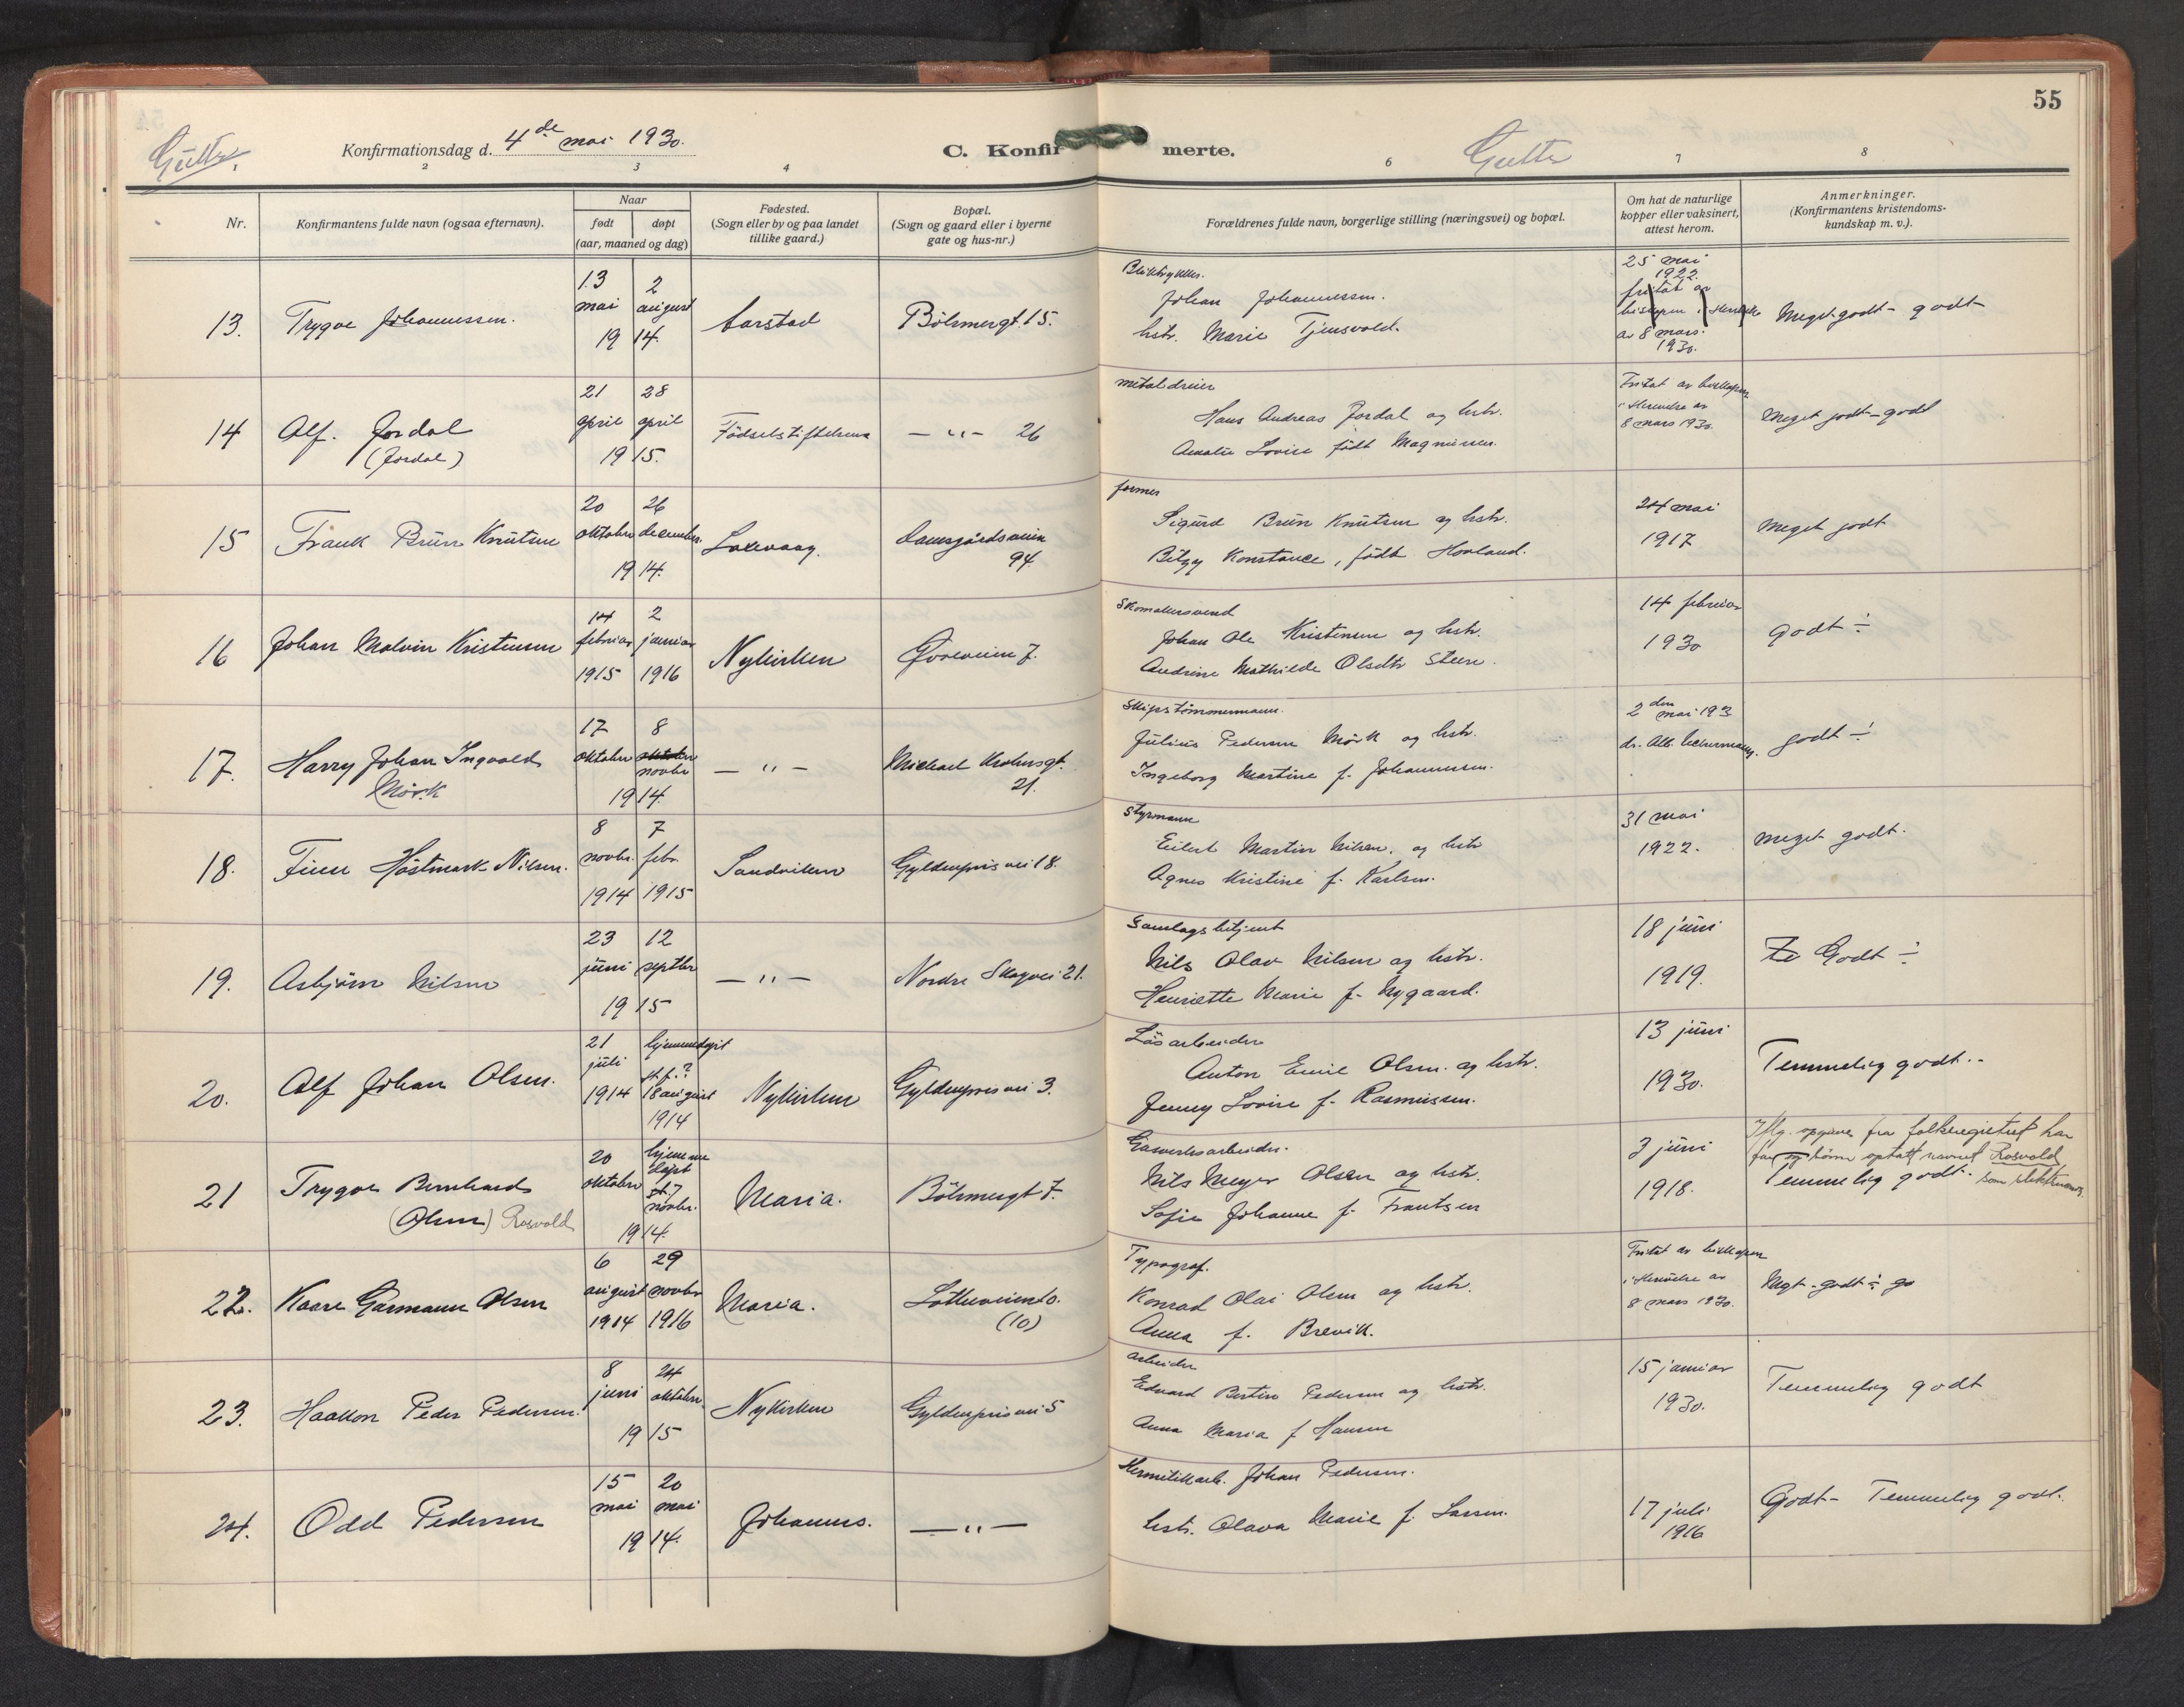 55
Gutter. Konfirmationsdag d. 4de mai 1930. C. Konfir merte. Gutter
2 3 4 6 7 8
Nr. Konfirmantens fulde navn (ogsaa efternavn). Naar født døpt (aar, maaned og dag) Fødested. (Sogn eller by og paa landet tillike gaard.) Bopæl. (Sogn og gaard eller i byerne gate og hus-nr.) Forældrenes fulde navn, borgerlige stilling (næringsvei) og bopæl. Om hat de naturlige kopper eller vaksinert, attest herom. Anmerkninger. (Konfirmantens kristendoms-kundskap m. v.).
13. Trygve Johannessen. 13 mai 2 august 1914. Aarstad Böhmergt. 15.
Johan Johannessen.
hstr. Marie Tjensvold.
25 mai 1922. fritat av biskopen i
av 8 mars. 1930.
Meget godt - godt
14 Alf. Jordal (Jordal) 21 april 28 april 1915. Fødselsstiftelsen — " — 26
metaldreier
Hans Andreas Jordal og hstr.
Amalie Lovise født Magnussen.
Fritat av biskopen i skrivelse av 8 mars 1930.
Meget godt - godt
15 Frank Brun Knutsen 20 oktober 26 december. 1914. Laxevaag. Damsgårdsveien 94.
former
Sigurd Brun Knutsen og hstr.
Konstance, født Hovland.
24 mai 1917
Meget godt
16 Johan Malvin Kristensen 14 februar 1915 2 januar 1916 Nykirken 7.
Skomakersvend
Johan Ole Kristensen og hstr.
Andrine Mathilde Olsdtr Steen.
14 februar 1930
godt ÷
17. Harry Johan Ingvald Mørk 17 oktober 8 oktober novbr 1914. — " — Michael Krohnsgt. 21.
Skipstømmermann.
Julius Pedersen Mørk og hstr.
Ingeborg Martine f. Johannessen.
2den mai 193
dr. Alb.
godt ÷
18. Finn Høstmark-Nilsen. 8 novbr. 1914 7 febr. 1915 Sandviken Gyldenprisvei 18.
Styrmann
Eilert Martin Nilsen. og hstr
Agnes Kristine f. Karlsen.
31 mai 1922.
meget godt.
19. Asbjørn Nilsen 23 juni 12 septbr 1915 — " — Nordre Skogvei 21.
Samlagsbetjent
Nils Olav Nilsen og hstr.
Henriette Marie f. Nygaard.
18 juni 1919.
Te Godt ÷
20. Alf Johan Olsen. 21 juli 1914 hjemmedøpt st. f.? 18 august 1914 Nykirken Gyldenprisvei 3.
Løsarbeider
Anton Emil Olsen. og hstr.
Jenny Lovise f. Rasmussen.
13 juni 1930.
Temmelig godt. -
21 Trygve Bernhard (Olsen) Rosvold 20 oktober hjemmedøpt st. 7 novbr. 1914. Maria. Böhmergt 7.
Gasverksarbeider.
Nils Meyer Olsen og hstr.
Sofie Johanne f. Frantsen
3 juni 1918.
Iflg. opgave fra folkeregistret har far og barn optatt navnet Rosvold som slektsnavn.
Temmelig godt.
22. Kaare Garmann Olsen 6 august 1914 29 novbr 1916 Maria. (10)
Typograf.
Konrad Olai Olsen og hstr.
Anna f. Brevik.
Fritat av biskopen i skrivelse av 8 mars 1930.
Megt - godt ÷ go
23. Haakon Peder Pedersen. 8 juni 24 oktober. 1915 Nykirken Gyldenprisvei 5
arbeider
Edvard Bertin Pedersen og hstr.
Anna Maria f Hansen
15 januar 1930.
Temmelig godt
24. Odd Pedersen 15 mai 20 mai 1914. Johannes. — " —
Hermetikarb. Johan Pedersen.
hstr. Olava Marie f. Larsen.
17 juli 1916
Godt - Temmelig godt.